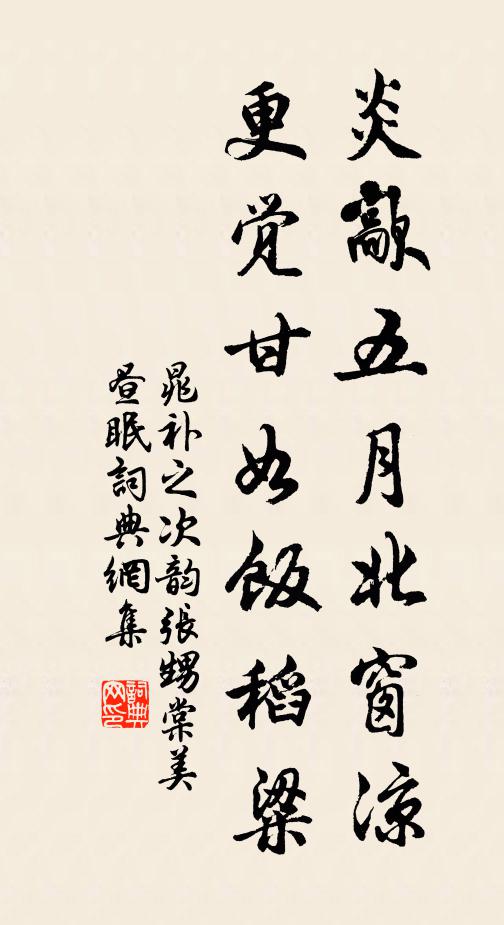 炎歊五月北窗凉
更觉甘如饭稻粱
晁补之次韵張甥棠美
昼眠詞典網集
詞典
网印